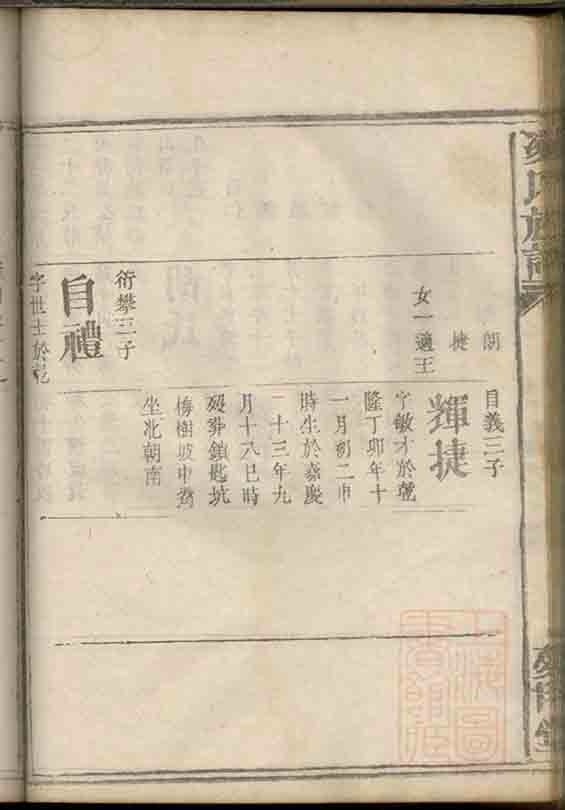 氏族譜
朗
捷
女一適王
自義三子
輝捷
字敏才於乾
隆丁卯年十
一月初二申
時生於嘉慶
二十三年九
月十八巳時
歿葬鎖匙坑
梅樹坡中
坐北朝南
衍攀三子
自禮
字世主於乾
上海圖
書館藏